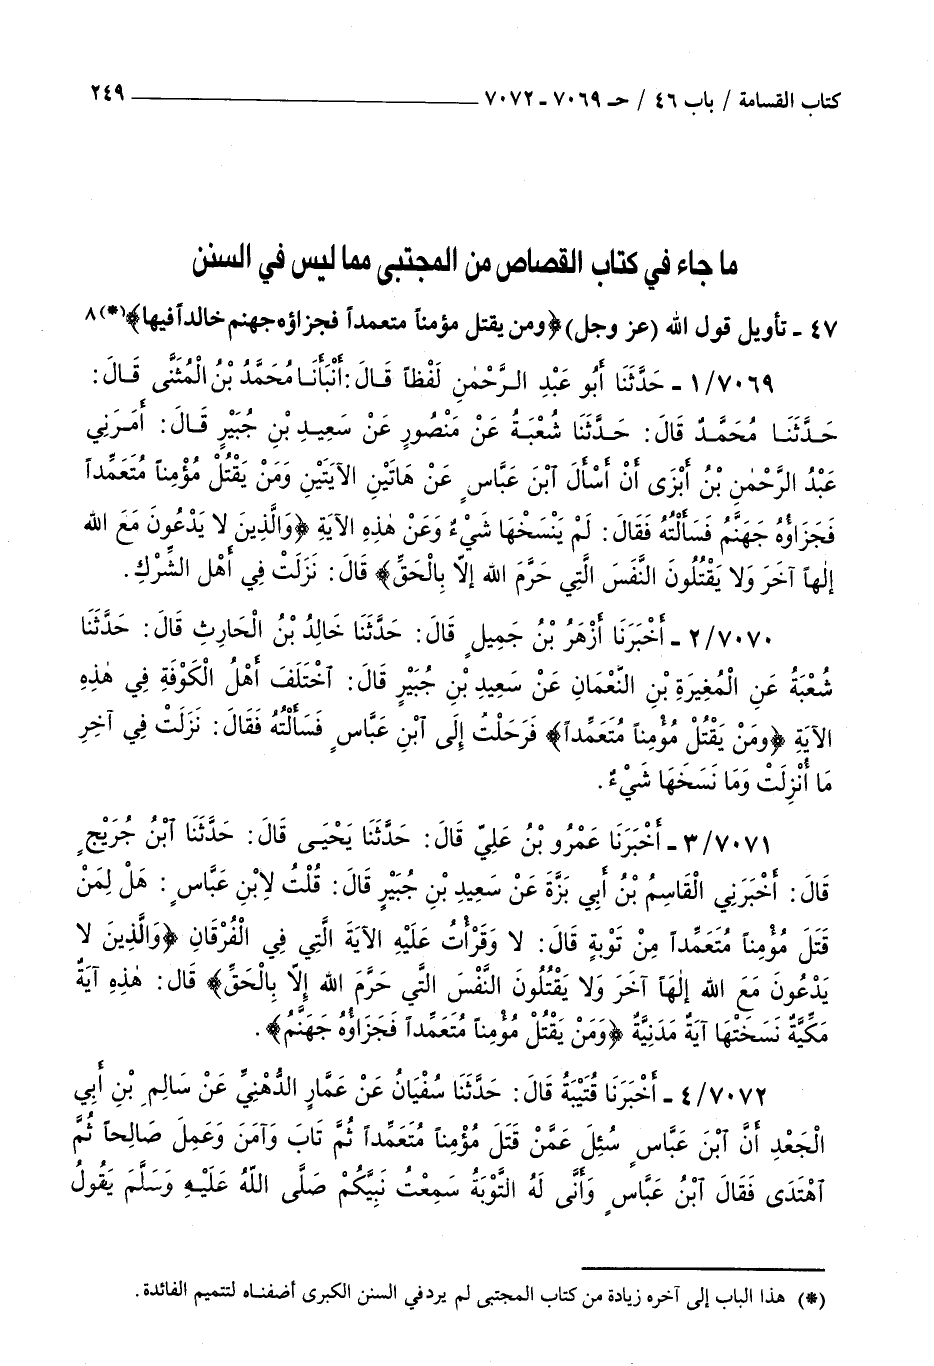 كتاب القسامة / باب ٤٦ / حـ ٧٠٦٩ ـ ٧٠٧٢ ٢٤٩
ما جاء في كتاب القصاص من المجتبى مما ليس في السنن
٤٧ ـ تأويل قول الله (عز وجل) ﴿ومن يقتل مؤمناً متعمداً فجزاؤه جهنم خالداً فيها﴾(*) ٨
١/٧٠٦٩ ـ حَدَّثَنَا أَبُو عَبْدِ الرَّحْمٰنِ لَفْظاً قَالَ: أَنْبَأَنَا مُحَمَّدُ بْنُ الْمُثَنَّى قَالَ:
حَدَّثَنَا مُحَمَّدٌ قَالَ: حَدَّثَنَا شُعْبَةُ عَنْ مَنْصُورٍ عَنْ سَعِيدِ بْنِ جُبَيْرٍ قَالَ: أَمَرَنِي
عَبْدُ الرَّحْمٰنِ بْنُ أَبْزَى أَنْ أَسْأَلَ ٱبْنَ عَبَّاسٍ عَنْ هَاتَيْنِ الآيَتَيْنِ وَمَنْ يَقْتُلْ مُؤْمِناً مُتَعَمِّداً
فَجَزَاؤُهُ جَهَنَّمُ فَسَأَلْتُهُ فَقَالَ: لَمْ يَنْسَخْهَا شَيْءٌ وَعَنْ هٰذِهِ الآيَةِ ﴿وَالَّذِينَ لا يَدْعُونَ مَعَ الله
إلٰهاً آخَرَ وَلا يَقْتُلُونَ النَّفْسَ الَّتِي حَرَّمَ الله إلّا بِالْحَقِّ﴾ قَالَ: نَزَلَتْ فِي أَهْلِ الشِّرْكِ.
٢/٧٠٧٠ ـ أَخْبَرَنَا أَزْهَرُ بْنُ جَمِيلٍ قَالَ: حَدَّثَنَا خَالِدُ بْنُ الْحَارِثِ قَالَ: حَدَّثَنَا
شُعْبَةُ عَنِ الْمُغِيرَةِ بْنِ النُّعْمَانِ عَنْ سَعِيدِ بْنِ جُبَيْرٍ قَالَ: ٱخْتَلَفَ أَهْلُ الْكُوفَةِ فِي هٰذِهِ
الآيَةِ ﴿وَمَنْ يَقْتُلْ مُؤْمِناً مُتَعَمِّداً﴾ فَرَحَلْتُ إِلَى ٱبْنِ عَبَّاسٍ فَسَأَلْتُهُ فَقَالَ: نَزَلَتْ فِي آخِرِ
مَا أُنْزِلَتْ وَمَا نَسَخَهَا شَيْءٌ.
٣/٧٠٧١ ـ أَخْبَرَنَا عَمْرُو بْنُ عَلِيّ قَالَ: حَدَّثَنَا يَحْيَى قَالَ: حَدَّثَنَا ٱبْنُ جُرَيْجٍ
قَالَ: أَخْبَرَنِي الْقَاسِمُ بْنُ أَبِي بَزَّةَ عَنْ سَعِيدِ بْنِ جُبَيْرٍ قَالَ: قُلْتُ لِابْنِ عَبَّاسٍ: هَلْ لِمَنْ
قَتَلَ مُؤْمِناً مُتَعَمِّداً مِنْ تَوْبَةٍ قَالَ: لا وَقَرَأْتُ عَلَيْهِ الآيَةَ الَّتِي فِي الْفُرْقَانِ ﴿وَالَّذِينَ لا
يَدْعُونَ مَعَ الله إلٰهَاً آخَرَ وَلا يَقْتُلُونَ النَّفْسَ الَّتي حَرَّمَ الله إلّا بِالْحَقِّ﴾ قَال: هٰذِهِ آيَةٌ
مَكِّيَّةٌ نَسَخَتْهَا آيَةٌ مَدَنِيَّةٌ ﴿وَمَنْ يَقْتُلْ مُؤْمِناً مُتَعَمِّداً فَجَزَاؤُهُ جَهَنَّمُ﴾.
٤/٧٠٧٢ ـ أَخْبَرَنَا قُتَيْبَةُ قَالَ: حَدَّثَنَا سُفْيَانُ عَنْ عَمَّارٍ الدُّهْنِيِّ عَنْ سَالِمِ بْنِ أَبِي
الْجَعْدِ أَنَّ ٱبْنَ عَبَّاسٍ سُئِلَ عَمَّنْ قَتَلَ مُؤْمِناً مُتَعَمِّداً ثُمَّ تَابَ وَآمَنَ وَعَمِلَ صَالِحاً ثُمَّ
ٱهْتَدَى فَقَالَ ٱبْنُ عَبَّاسٍ وَأَنَّى لَهُ التَّوْبَةُ سَمِعْتُ نَبِيَّكُمْ صَلَّى اللَّهُ عَلَيْهِ وَسَلَّمَ يَقُولُ
(*) هذا الباب إلى آخره زيادة من كتاب المجتبى لم يرد في السنن الكبرى أضفناه لتتميم الفائدة.